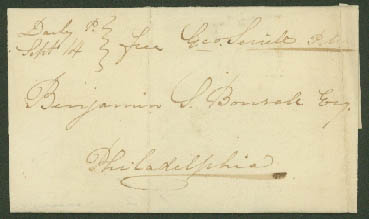 Darby P.
Sept 14 } free Geo. Serrill P.M.
Benjamin S. Bonsall Esq.
Philadelphia